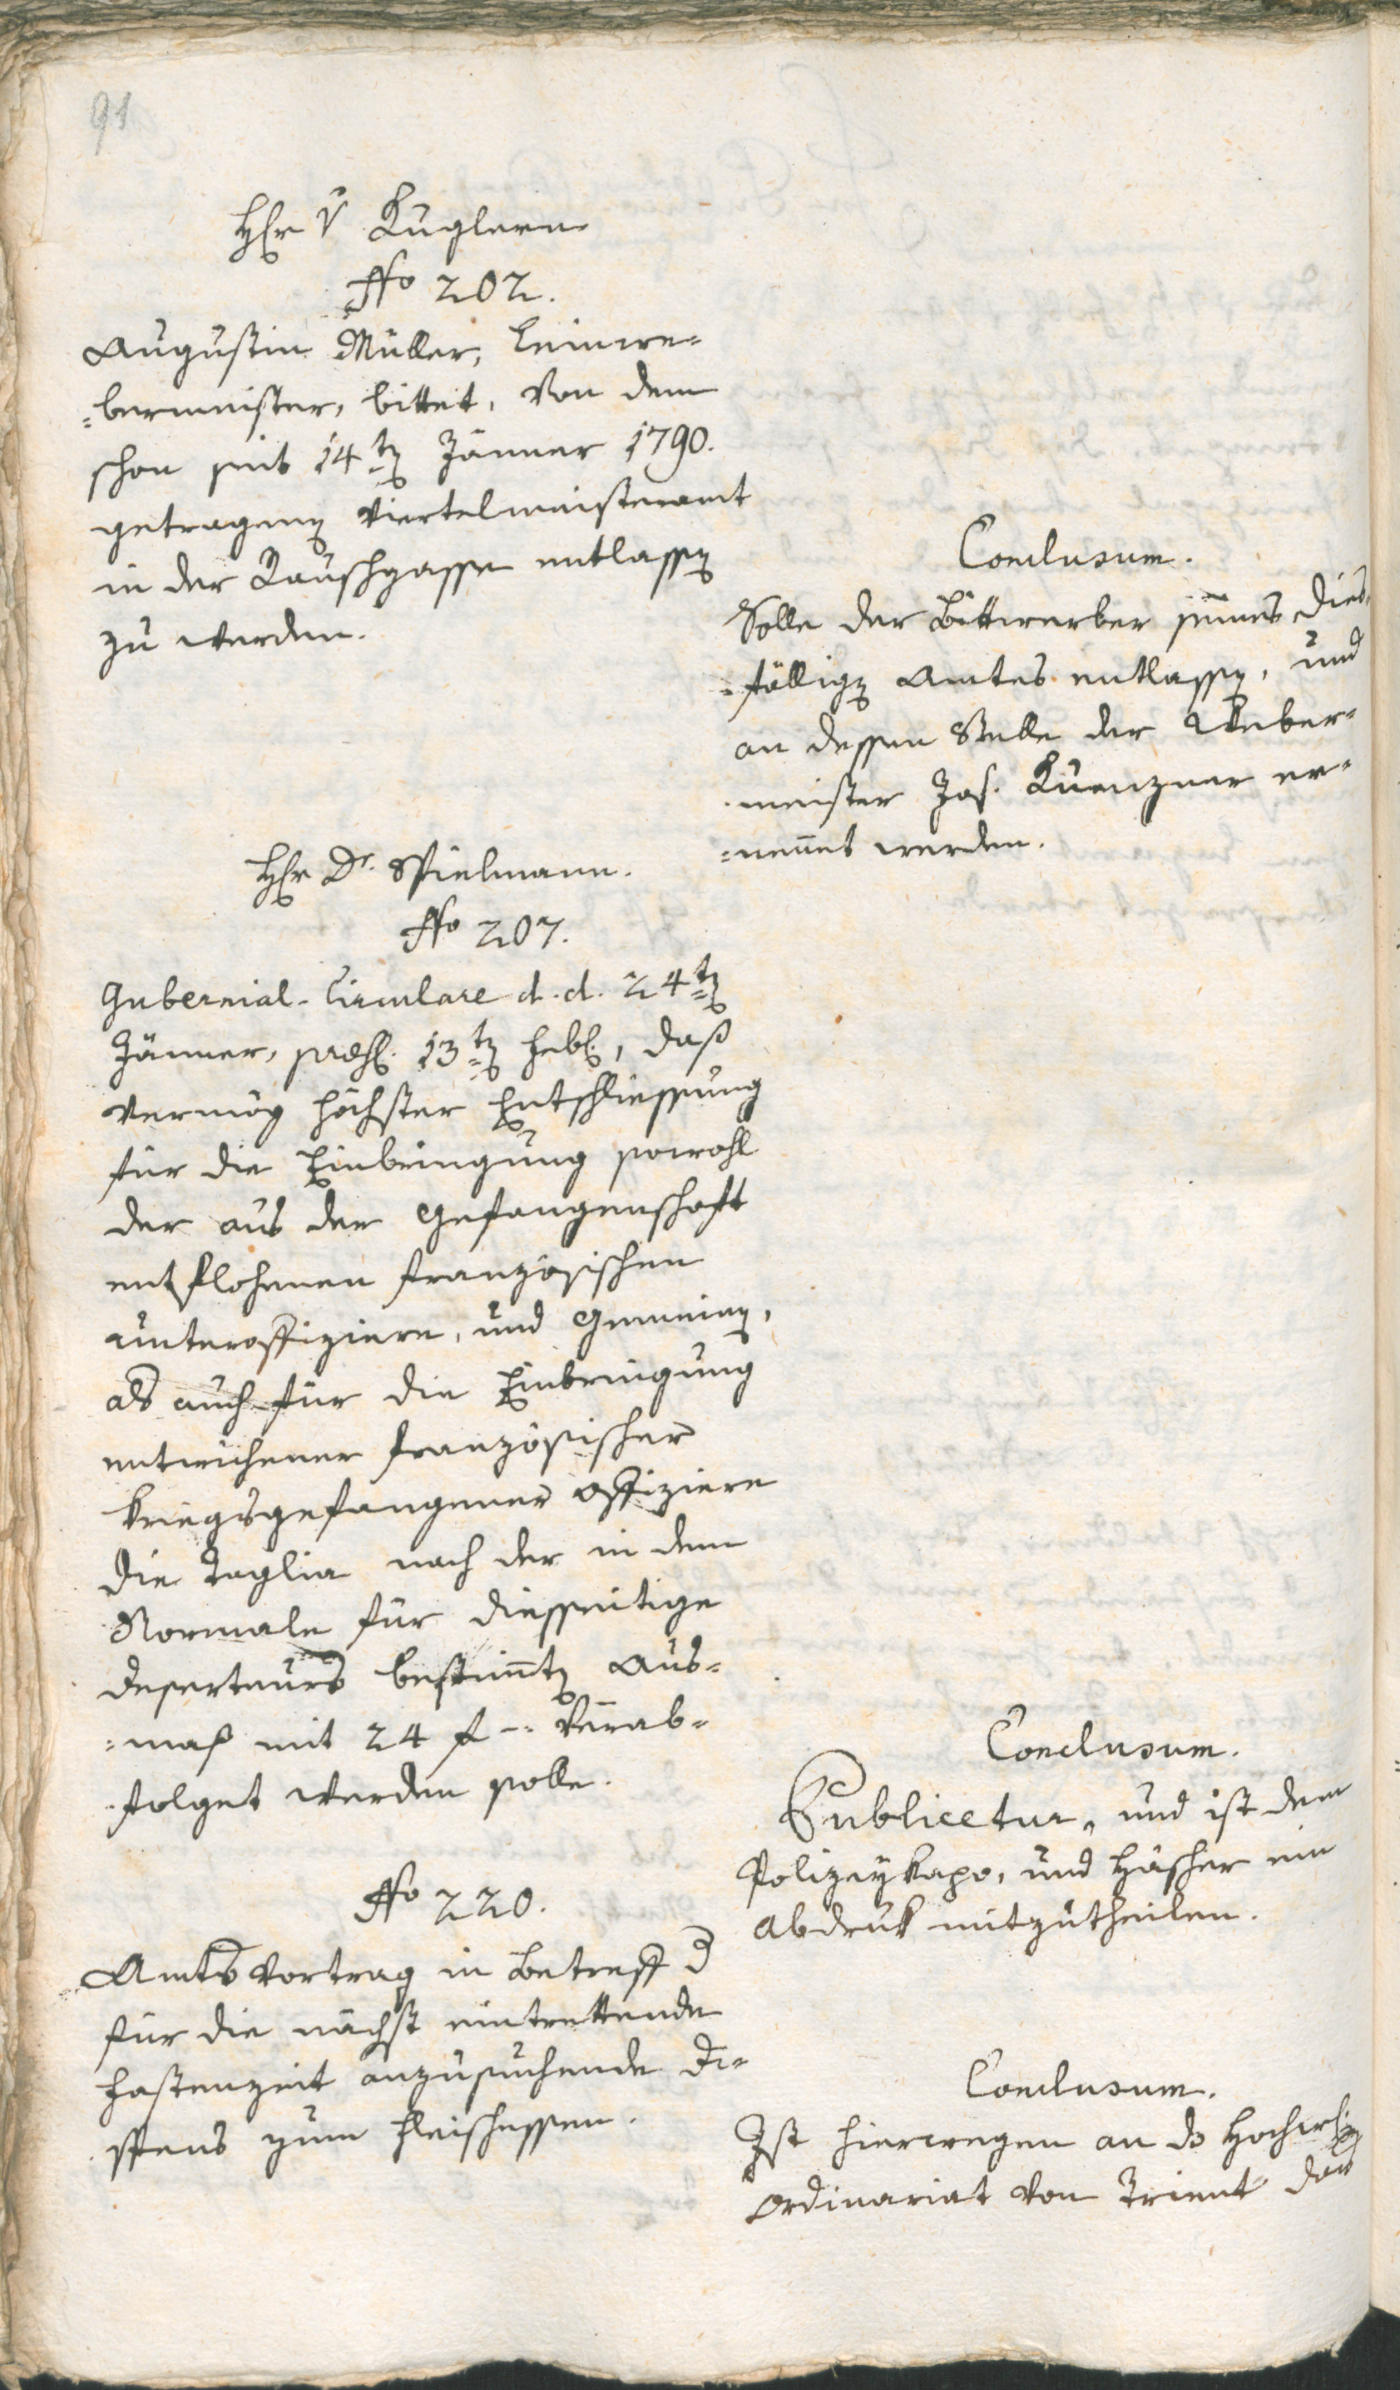 91
Hr v Kuglern
No 202.
Augustin Müller, Leinwe-
=bermeister, bittet, von dem
schon seit 14ten Jänner 1790.
getragenen Viertelmeisteramt
in der Rauschgasse entlassen
zu werden.
Conclusum.
Solle der Bittwerber seines dies-
=fälligen Amtes entlassen, und
an dessen Stelle der Weber-
meister Jos. Kuenzner er-
=nennet werden.
Hr Dr. Spielmann.
No 207.
Gubernial-Circulare d. d. 24ten
Jänner, 13ten Feb., daß
vermög höchster Entschliessung
für die Einbringung sowohl
der aus der Gefangenschaft
entflohenen französischen
Unteroffiziere, und Gemeinen,
als auch für die Einbringung
entwichener französischer
kriegsgefangener Offiziere
die Taglia nach der in dem
Normale für diesseitige
Deserteurs bestimmten Aus-
=maß mit 24 f verab-
folget werden solle.
Conclusum.
Publicetur, und ist dem
Polizeykapo, und Häscher ein
Abdruk mitzutheilen.
No 220.
Amtsvortrag in Betreff d
für die nächst eintrettende
Fastenzeit anzusuchende Di-
spens zum Fleischessen.
Conclusum.
Ist hierwegen an ds Hochw
Ordinariat von Trient das